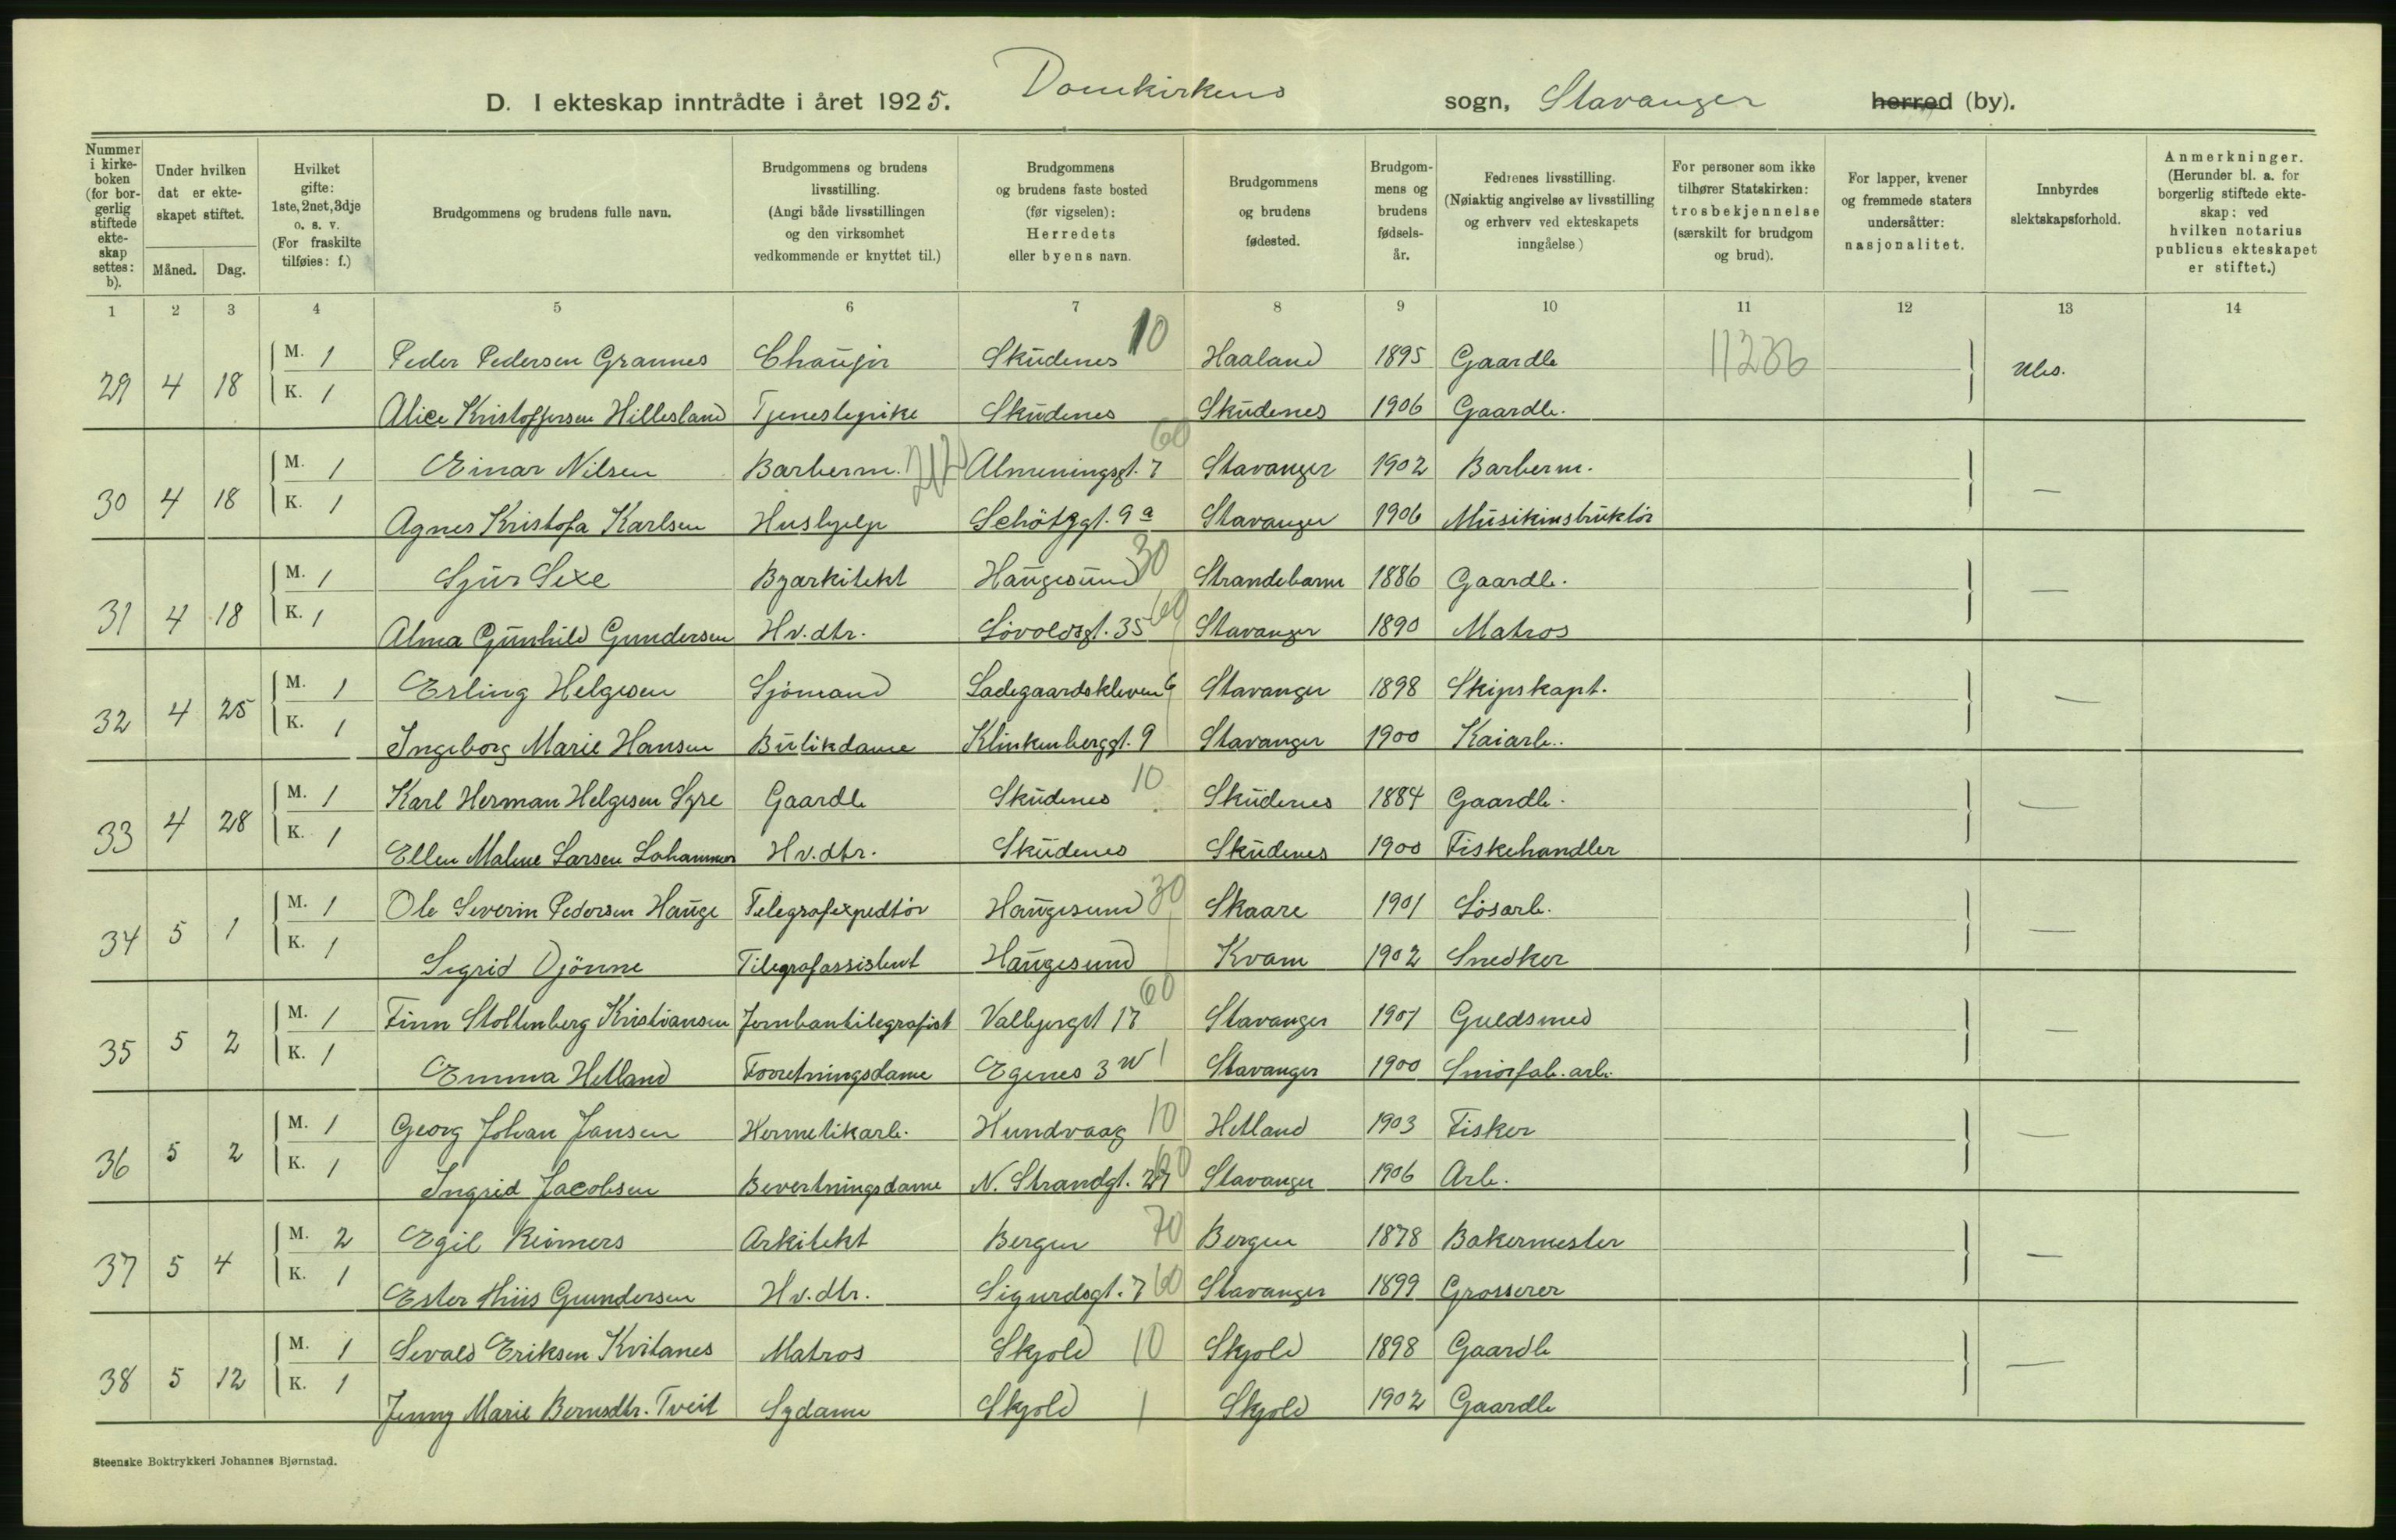 D. I ekteskap inntrådte i året 1925. Domkirkens sogn, Stavanger herred (by).
Nummer i kirkeboken (for borgerlig stiftede ekteskap settes: b).
Under hvilken dat er ekteskapet stiftet.
Måned. Dag.
Hvilket gifte: 1ste, 2net, 3dje o. s. v. (For fraskilte tilføies: f.)
Brudgommens og brudens fulle navn.
Brudgommens og brudens livsstilling. (Angi både livsstillingen og den virksomhet vedkommende er knyttet til.)
Brudgommens og brudens faste bosted (før vigselen): Herredets eller byens navn.
Brudgommens og brudens fødested.
Brudgommens og brudens fødselsår.
Fedrenes livsstilling. (Nøiaktig angivelse av livsstilling og erhverv ved ekteskapets inngåelse)
For personer som ikke tilhører Statskirken: trosbekjennelse (særskilt for brudgom og brud).
For lapper, kvener og fremmede staters undersåtter: nasjonalitet.
Innbyrdes slektskapsforhold.
Anmerkninger. (Herunder bl. a. for borgerlig stiftede ekteskap: ved hvilken notarius publicus ekteskapet er stiftet.)
1 2 3 4 5 6 7 8 9 10 11 12 13 14
29 4 18 M. 1 Peder Pedersen Grannes Chaufør Skudenes 10 Haaland 1895 Gaardb 11236
K. 1 Alice Kristoffersen Hillesland Tjenestepike Skudenes Skudenes 1906 Gaardb.
30 4 18 M. 1 Einar Nilsen Barberm. Almeningsgt. 7 60 Stavanger 1902 Barberm. —
K. 1 Agnes Kristofa Karlsen Hushjelp Schötzgt. 9a Stavanger 1906 Musikinstruktør
31 4 18 M. 1 Sjur Sexe Byarkitekt Haugesund 30 Strandebarm 1886 Gaardb. —
K. 1 Alma Gunhild Gundersen Hv.dtr. Lövoldsgt. 35 60 Stavanger 1890 Matros
32 4 25 M. 1 Erling Helgesen Sjömand Ladegaardskleven 6 Stavanger 1898 Skipskapt. —
K. 1 Ingeborg Marie Hansen Butikdame Klinkenberggt. 9 Stavanger 1900 Kaiarb..
33 4 28 M. 1 Karl Herman Helgesen Syre Gaardb Skudenes 10 Skudenes 1884 Gaardb. —
K. 1 Ellen Malene Larsen Lahammer Hv.dtr. Skudenes Skudenes 1900 Fiskehandler
34 5 1 M. 1 Ole Severin Pedersen Hauge Telegrafexpedtör Haugesund 30 Skaare 1901 Lösarb. —
K. 1 Sigrid Djönne Telegrafassistent Haugesund Kvam 1902 Snedker
35 5 2 M. 1 Finn Stoltenberg Kristiansen Jernbantelegrafist Valbjergt 17 60 Stavanger 1901 Guldsmed —
K. 1 Emma Hetland Forretningsdame Egenes 3 Stavanger 1900 Smörfab. arb.
36 5 2 M. 1 Georg Johan Jansen Hermetikarb. Hundvaag 10 Hetland 1903 Fisker —
K. 1 Ingrid Jacobsen Bevertningsdame N. Strandgt. 27 60 Stavanger 1906 Arb.
37 5 4 M. 2 Egil Reimers Arkitekt Bergen 70 Bergen 1878 Bakermester —
K. 1 Ester Hiis Gundersen Hv.dtr. Sigurdsgt. 7 60 Stavanger 1899 Grosserer
38 5 12 M. 1 Sevald Eriksen Kvitanes Matros Skjold 10 Skjold 1898 Gaardb —
K. 1 Jenny Marie Berntsdtr. Tveit Sydame Skjold Skjold 1902 Gaardb
Steenske Boktrykkeri Johannes Bjørnstad.